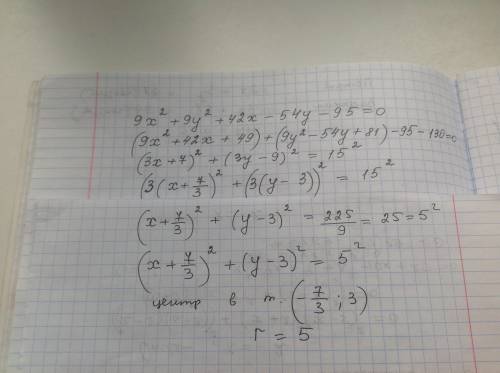 9x² + 9y² + 42x - 54y - 95 = 0
(9x² + 42x + 49) + (9y² - 54y + 81) - 95 - 130 = 0
(3x + 7)² + (3y - 9)² = 15²
(3(x + 7/3))² + (3(y - 3))² = 15²
(x + 7/3)² + (y - 3)² = 225/9 = 25 = 5²
(x + 7/3)² + (y - 3)² = 5²
центр в т. (-7/3 ; 3)
r = 5